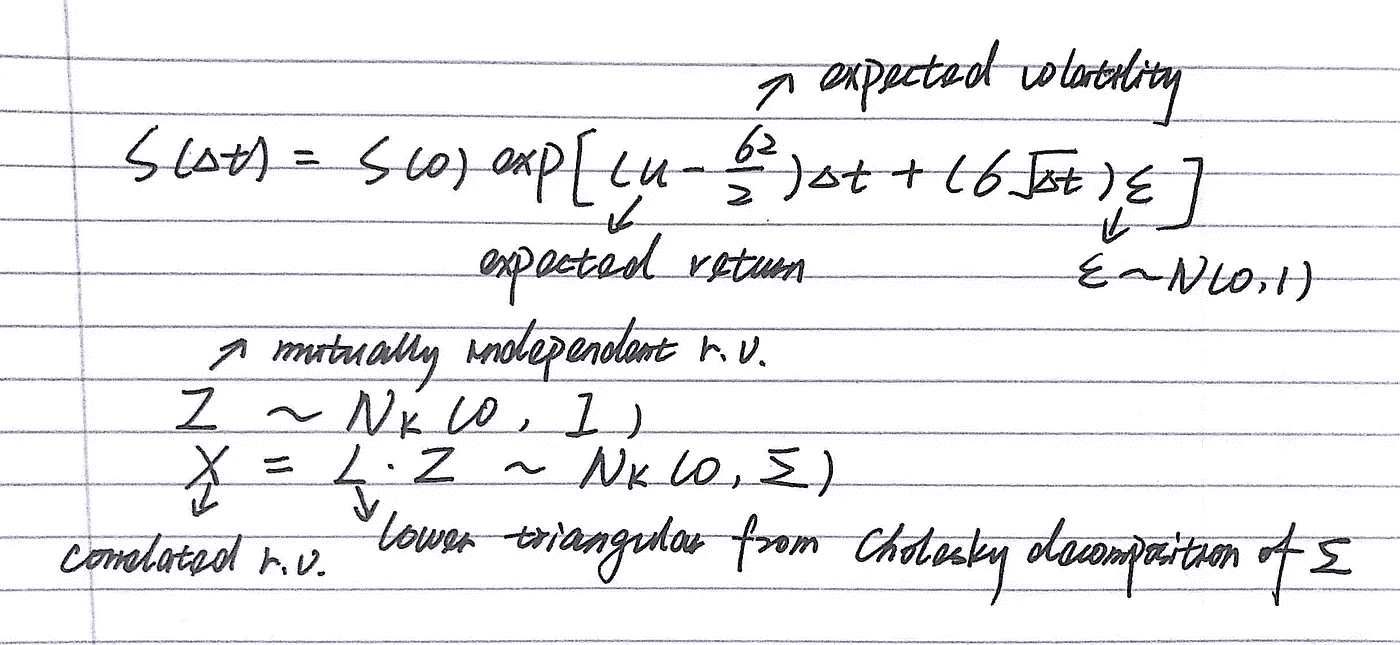 ↗ expected volatility
S(Δt) = S(0) exp[(u - σ²/2)Δt + (σ√Δt)ε]
↙ expected return
↙ ε ~ N(0,1)
↗ mutually independent r.v.
Z ~ N_K(0, I)
X = L · Z ~ N_K(0, Σ)
↓ correlated r.v. ↘ lower triangular from Cholesky decomposition of Σ